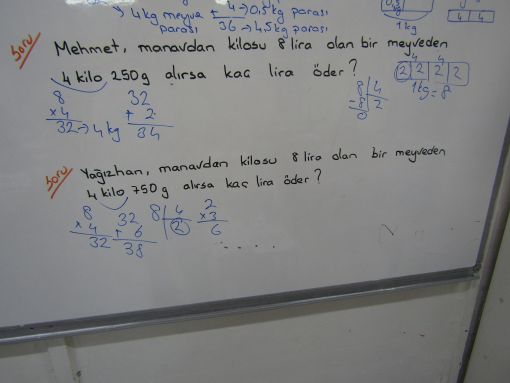 → 4kg meyve parası
4 → 0,5 kg parası
36 → 4,5 kg parası
1 kg
4 4
Soru
Mehmet, manavdan kilosu 8 lira olan bir meyveden
4 kilo 250 g alırsa kaç lira öder?
8 32
x4 + 2
32 → 4 kg 34
8 4
-8 2
0
4 4
2 2 2 2
1kg = 8
Soru
Yağızhan, manavdan kilosu 8 lira olan bir meyveden
4 kilo 750 g alırsa kaç lira öder?
8 32 8 4 2
x4 + 6 2 x3
32 38 6
....